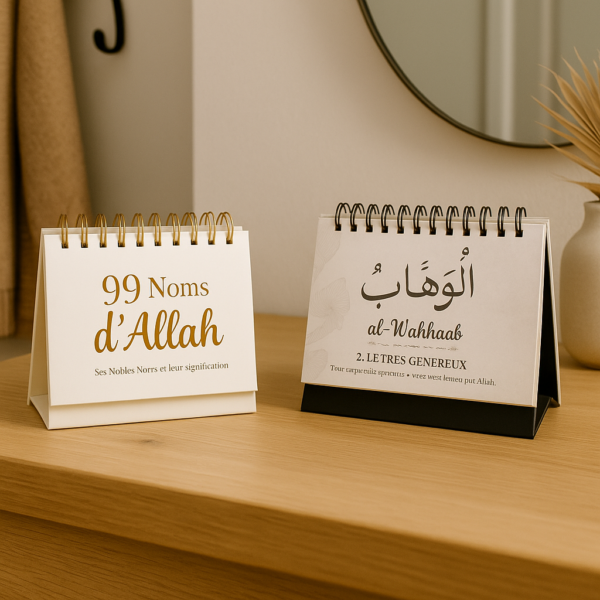 99 Noms
d'Allah
Ses Nobles Norrs et leur signification
الْوَهَّابُ
al-Wahhaab
2. LE TRES GENEREUX
Tour • west lemen put Allah.